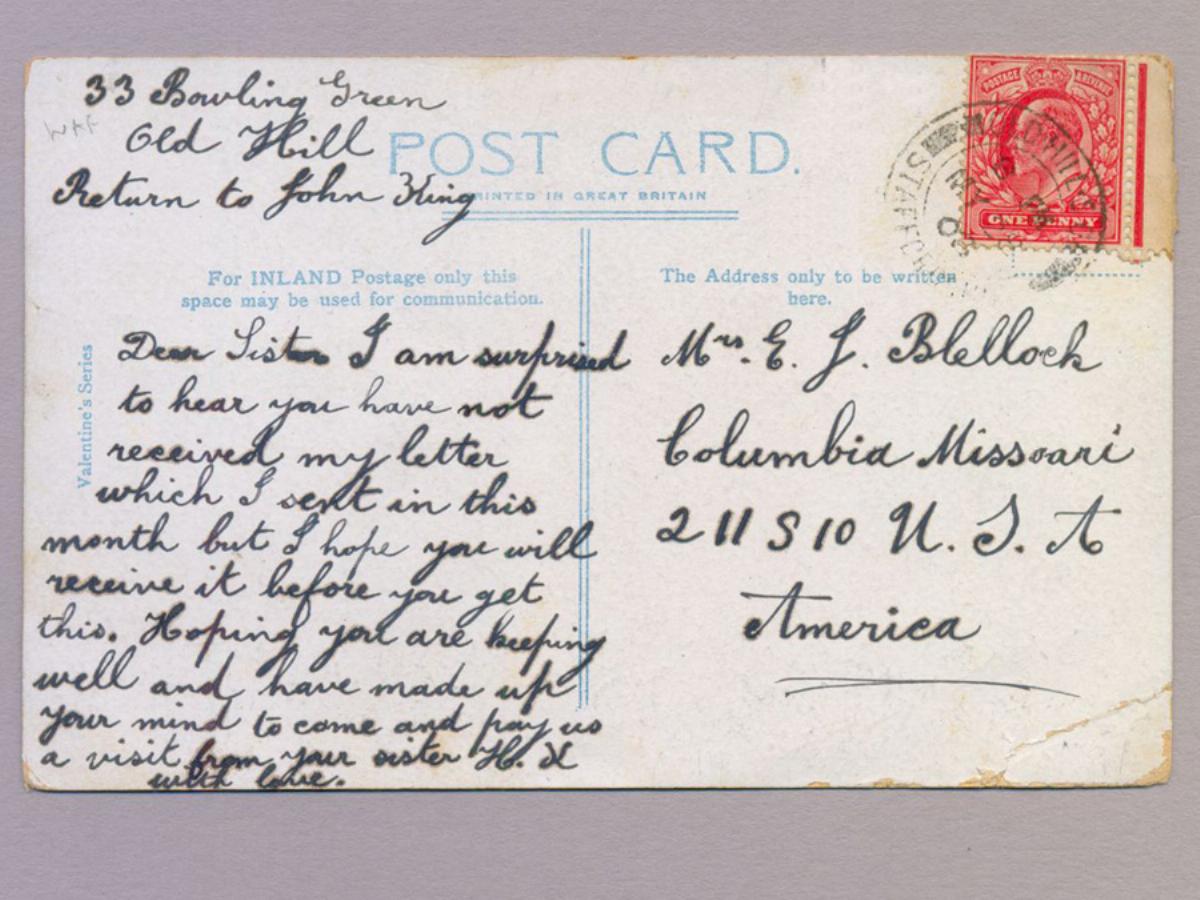 33 Bowling Green
Old Hill
Return to John King
POST CARD.
PRINTED IN GREAT BRITAIN
POSTAGE & REVENUE
ONE PENNY
For INLAND Postage only this
space may be used for communication.
The Address only to be written
here.
Valentine's Series
Dear Sister I am surprised
to hear you have not
received my letter
which I sent in this
month but I hope you will
receive it before you get
this. Hoping you are keeping
well and have made up
your mind to come and pay us
a visit from your sister H.
with love.
Mrs. E. J. Blellock
Columbia Missoari
211 S 10 U. S. A
America